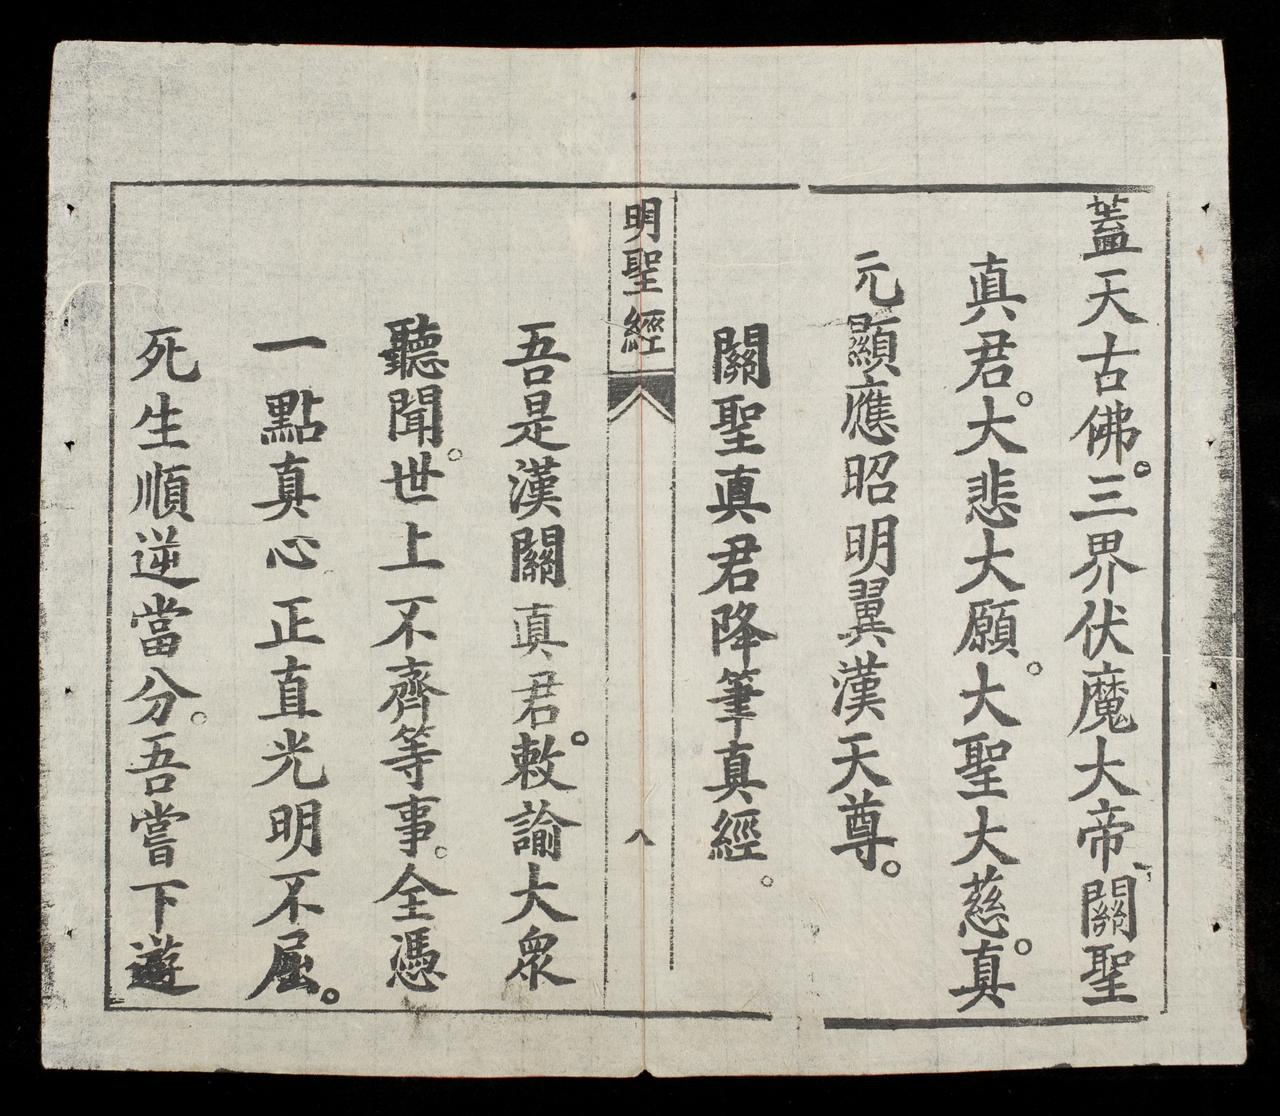 蓋天古佛。三界伏魔大帝關聖
真君。大悲大願。大聖大慈。真
元顯應昭明翼漢天尊。
關聖真君降筆真經。
明聖經
八
吾是漢關真君。敕諭大衆
聽聞。世上不齊等事。全憑
一點真心正直光明不屈。
死生順逆當分。吾嘗下遊